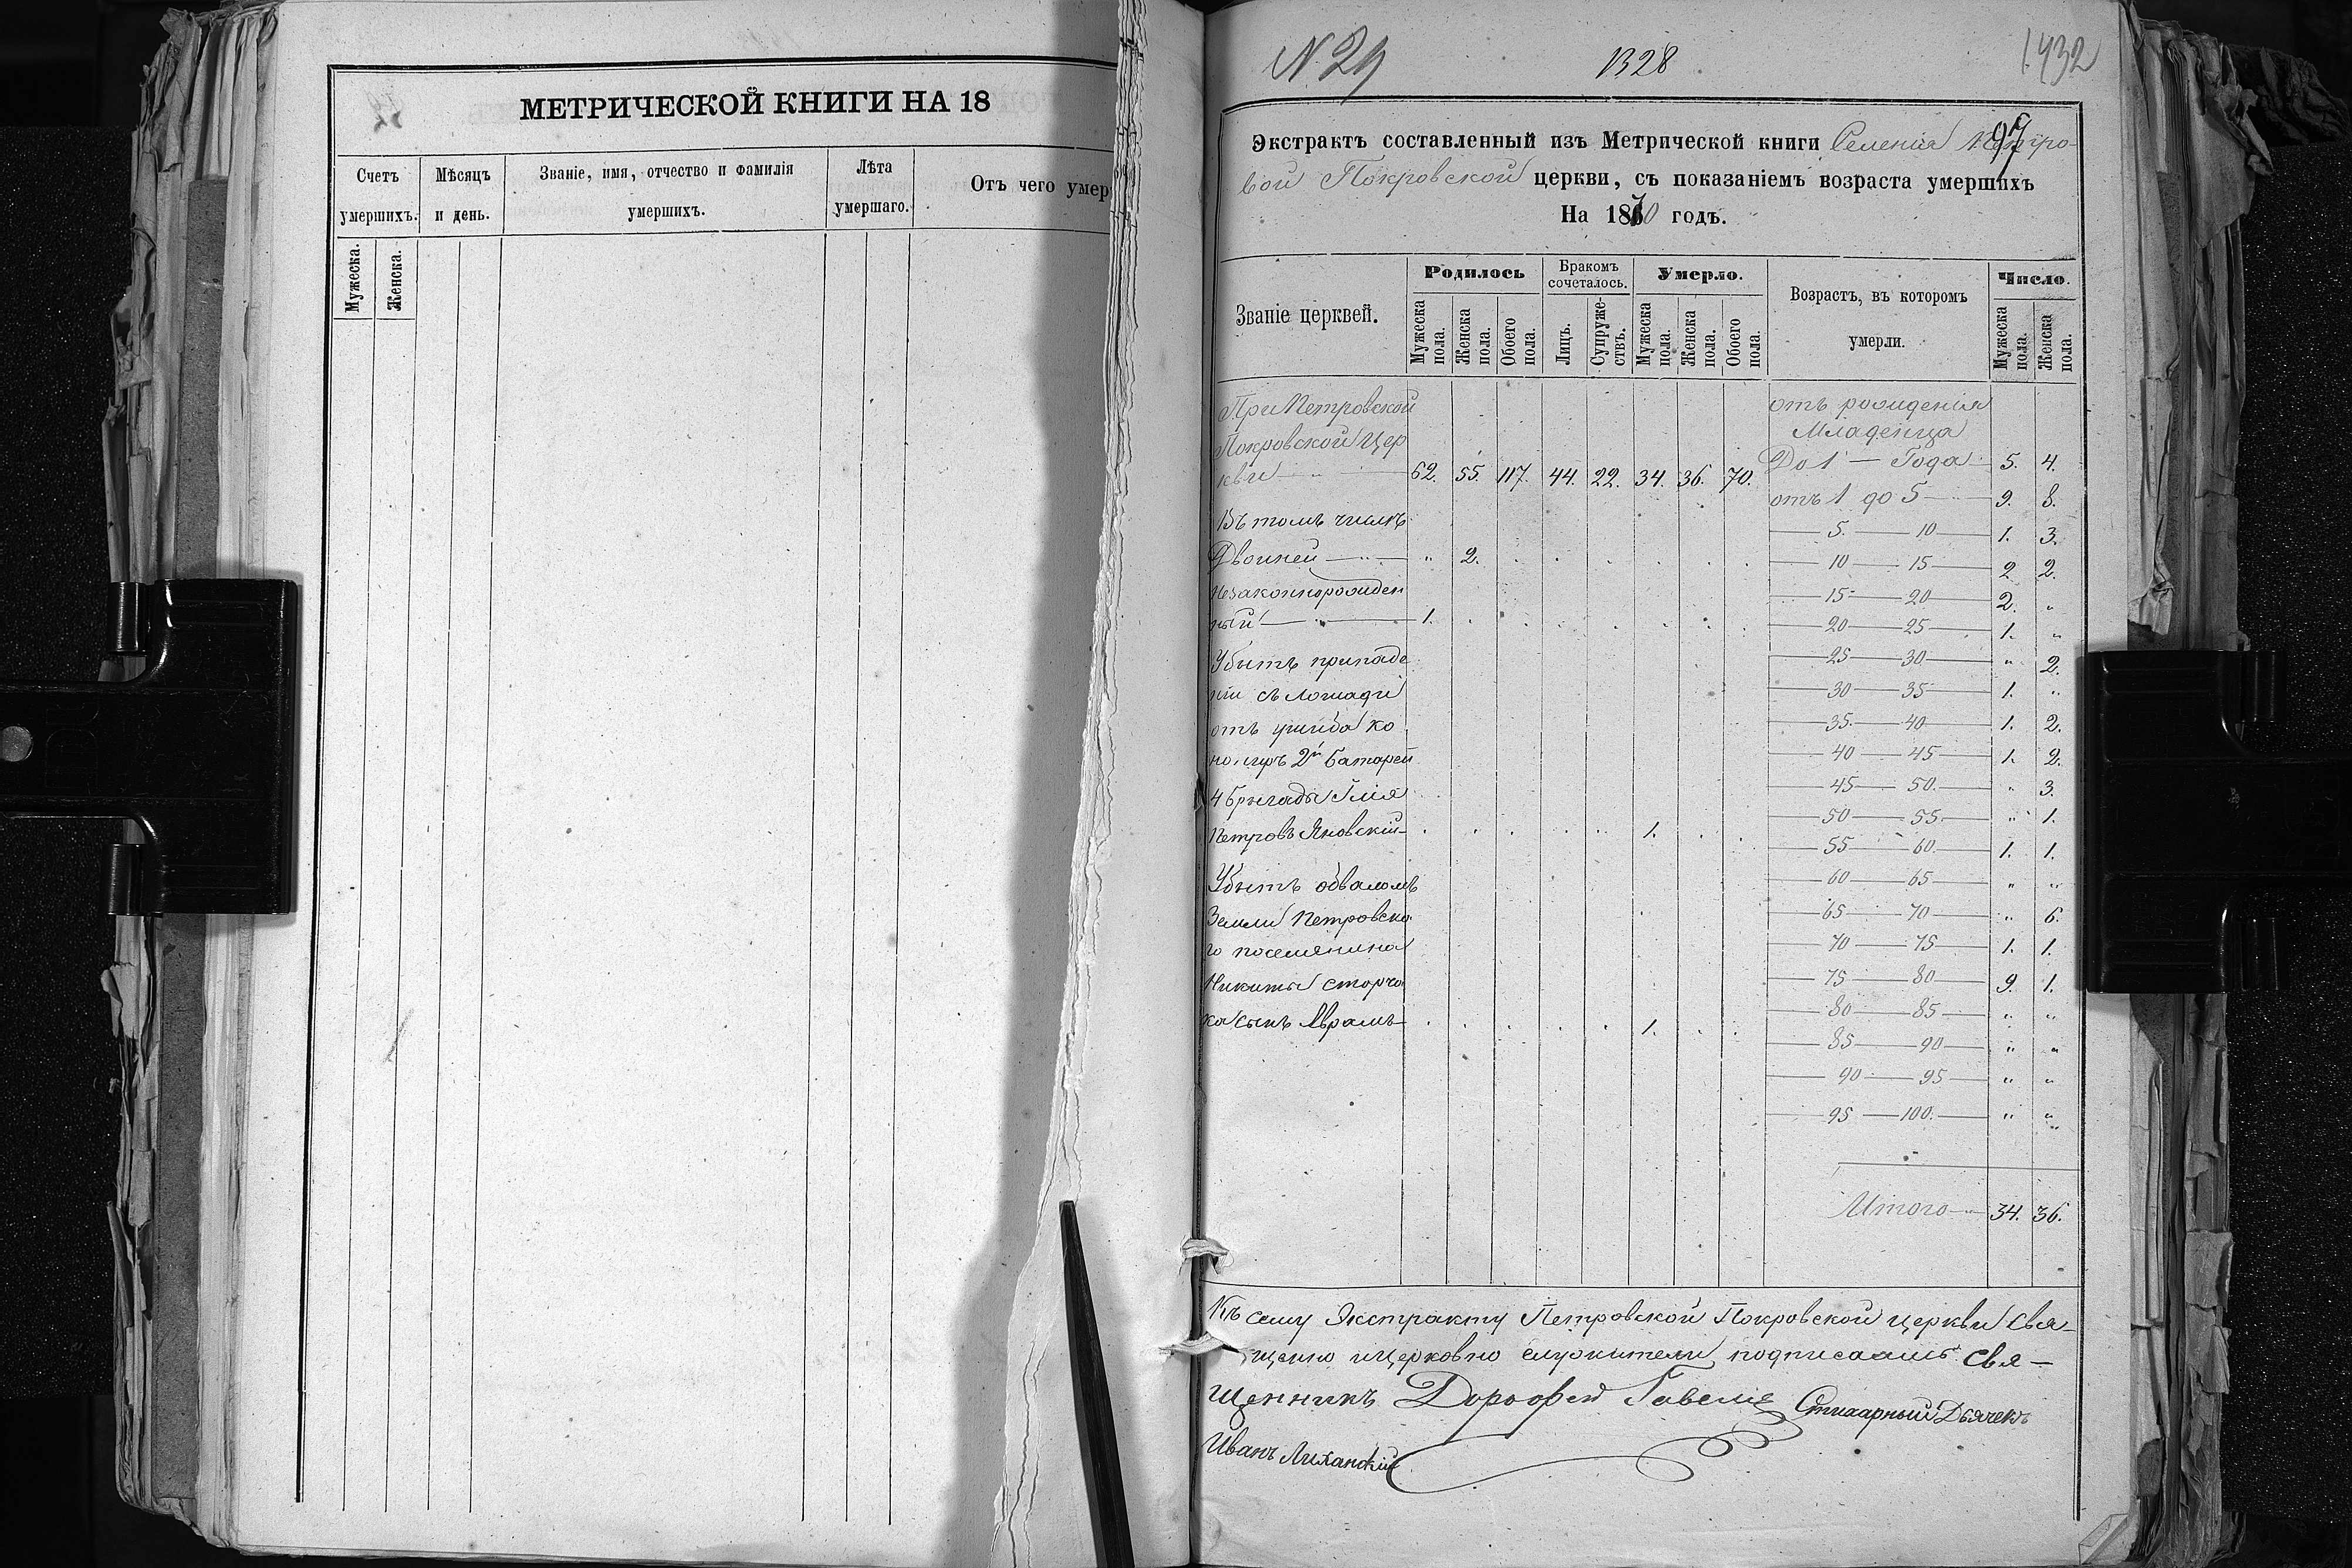 МЕТРИЧЕСКОЙ КНИГИ НА 18
Счетъ умершихъ.
Мужеска.
Женска.
Мѣсяцъ и день.
Званіе, имя, отчество и фамилія умершихъ.
Лѣта умершаго.
Отъ чего умер
N. 29
1328
1432
97
Экстрактъ составленный изъ Метрической книги Селенія Петро-
вой Покровской церкви, съ показаніемъ возраста умершихъ
На 1870 годъ.
Званіе церквей.
Родилось
Мужеска пола.
Женска пола.
Обоего пола.
Бракомъ сочеталось.
Лицъ.
Супружествъ.
Умерло.
Мужеска пола.
Женска пола.
Обоего пола.
Возрастъ, въ которомъ умерли.
Число.
Мужеска пола.
Женска пола.
При Петровской
Покровской Цер
кви — 62. 55. 117. 44. 22. 34. 36. 70.
Въ томъ числѣ
Двойней — " 2.
Незаконнорожден
ный — 1.
Убитъ при паде
ніи съ лошади
отъ ушиба ко
нониръ 2й батареи
4 бригады Илія
Петровъ Яновскій — 1.
Убитъ обваломъ
Земли Петровска
го поселянина
Никиты Сторча
ка сынъ Аврамъ — 1.
отъ рожденія
Младенца
До 1 — Года 5. 4.
отъ 1 до 5 — 9. 8.
— 5. — 10 — 1. 3.
— 10 — 15 — 2 2.
— 15 — 20 — 2. "
— 20 — 25 — 1. "
— 25 — 30 — " 2.
— 30 — 35 — 1. "
— 35. — 40 — 1. 2.
— 40 — 45 — 1. 2.
— 45 — 50. — " 3.
— 50 — 55. — " 1.
— 55 — 60. — 1. 1.
— 60 — 65 — " "
— 65 — 70 — " 6.
— 70 — 75 — 1. 1.
— 75 — 80 — 9. 1.
— 80 — 85 — " "
— 85 — 90 — " "
— 90 — 95 — " "
— 95 — 100. — " "
Итого — 34. 36.
Къ сему Экстракту Петровской Покровской церкви Свя-
щенно и церковно служители подписались. Свя-
щенникъ Дорофей Стихарный Дьячекъ
Иванъ Лиханскій